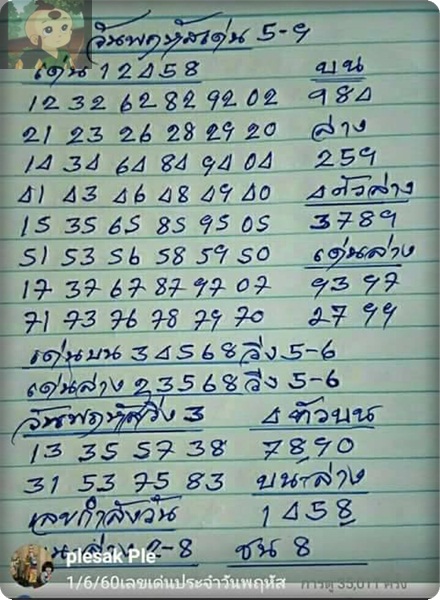 วันพฤหัสเด่น 5-9
เด่น 1 2 4 5 8 บน
12 32 62 82 92 02 984
21 23 26 28 29 20 ล่าง
14 34 64 84 94 04 259
41 43 46 48 49 40 4 ตัวล่าง
15 35 65 85 95 05 3789
51 53 56 58 59 50 เด่นล่าง
17 37 67 87 97 07 93 97
71 73 76 78 79 70 27 99
เด่นบน 34568 วิ่ง 5-6
เด่นล่าง 23568 วิ่ง 5-6
วันพฤหัสวิ่ง 3 4 ตัวบน
13 35 57 38 7890
31 53 75 83 บน-ล่าง
เลขกำลังวัน 1458
ล่าง -8 ชน 8
plesak Ple-
1/6/60เลขเด่นประจำวันพฤหัส การดู 35,011 ครั้ง